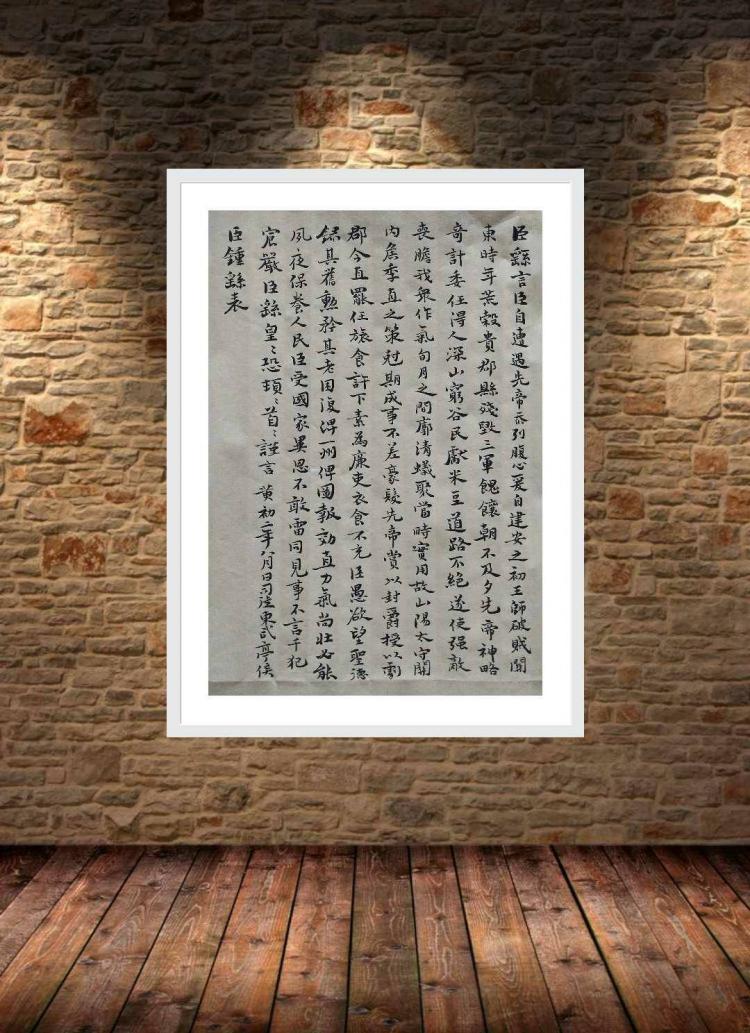 臣繇言臣自遭遇先帝忝列腹心爰自建安之初王師破賊關
東時年荒穀貴郡縣殘毀三軍餽饟朝不及夕先帝神略
奇計委任得人深山窮谷民獻米豆道路不絕遂使强敵
喪膽我衆作氣旬月之間廓清蟻聚當時實用故山陽太守關
內侯季直之策尅期成事不差豪髮先帝賞以封爵授以劇
郡今直罷任旅食許下素為廉吏衣食不充臣愚欲望聖德
錄其舊勳矜其老困復俾一州俾圖報効直力氣尚壯必能
夙夜保養人民臣受國家異恩不敢雷同見事不言干犯
宸嚴臣繇皇〻恐頓〻首〻謹言 黃初二年八月日司徒東武亭侯
臣鍾繇表